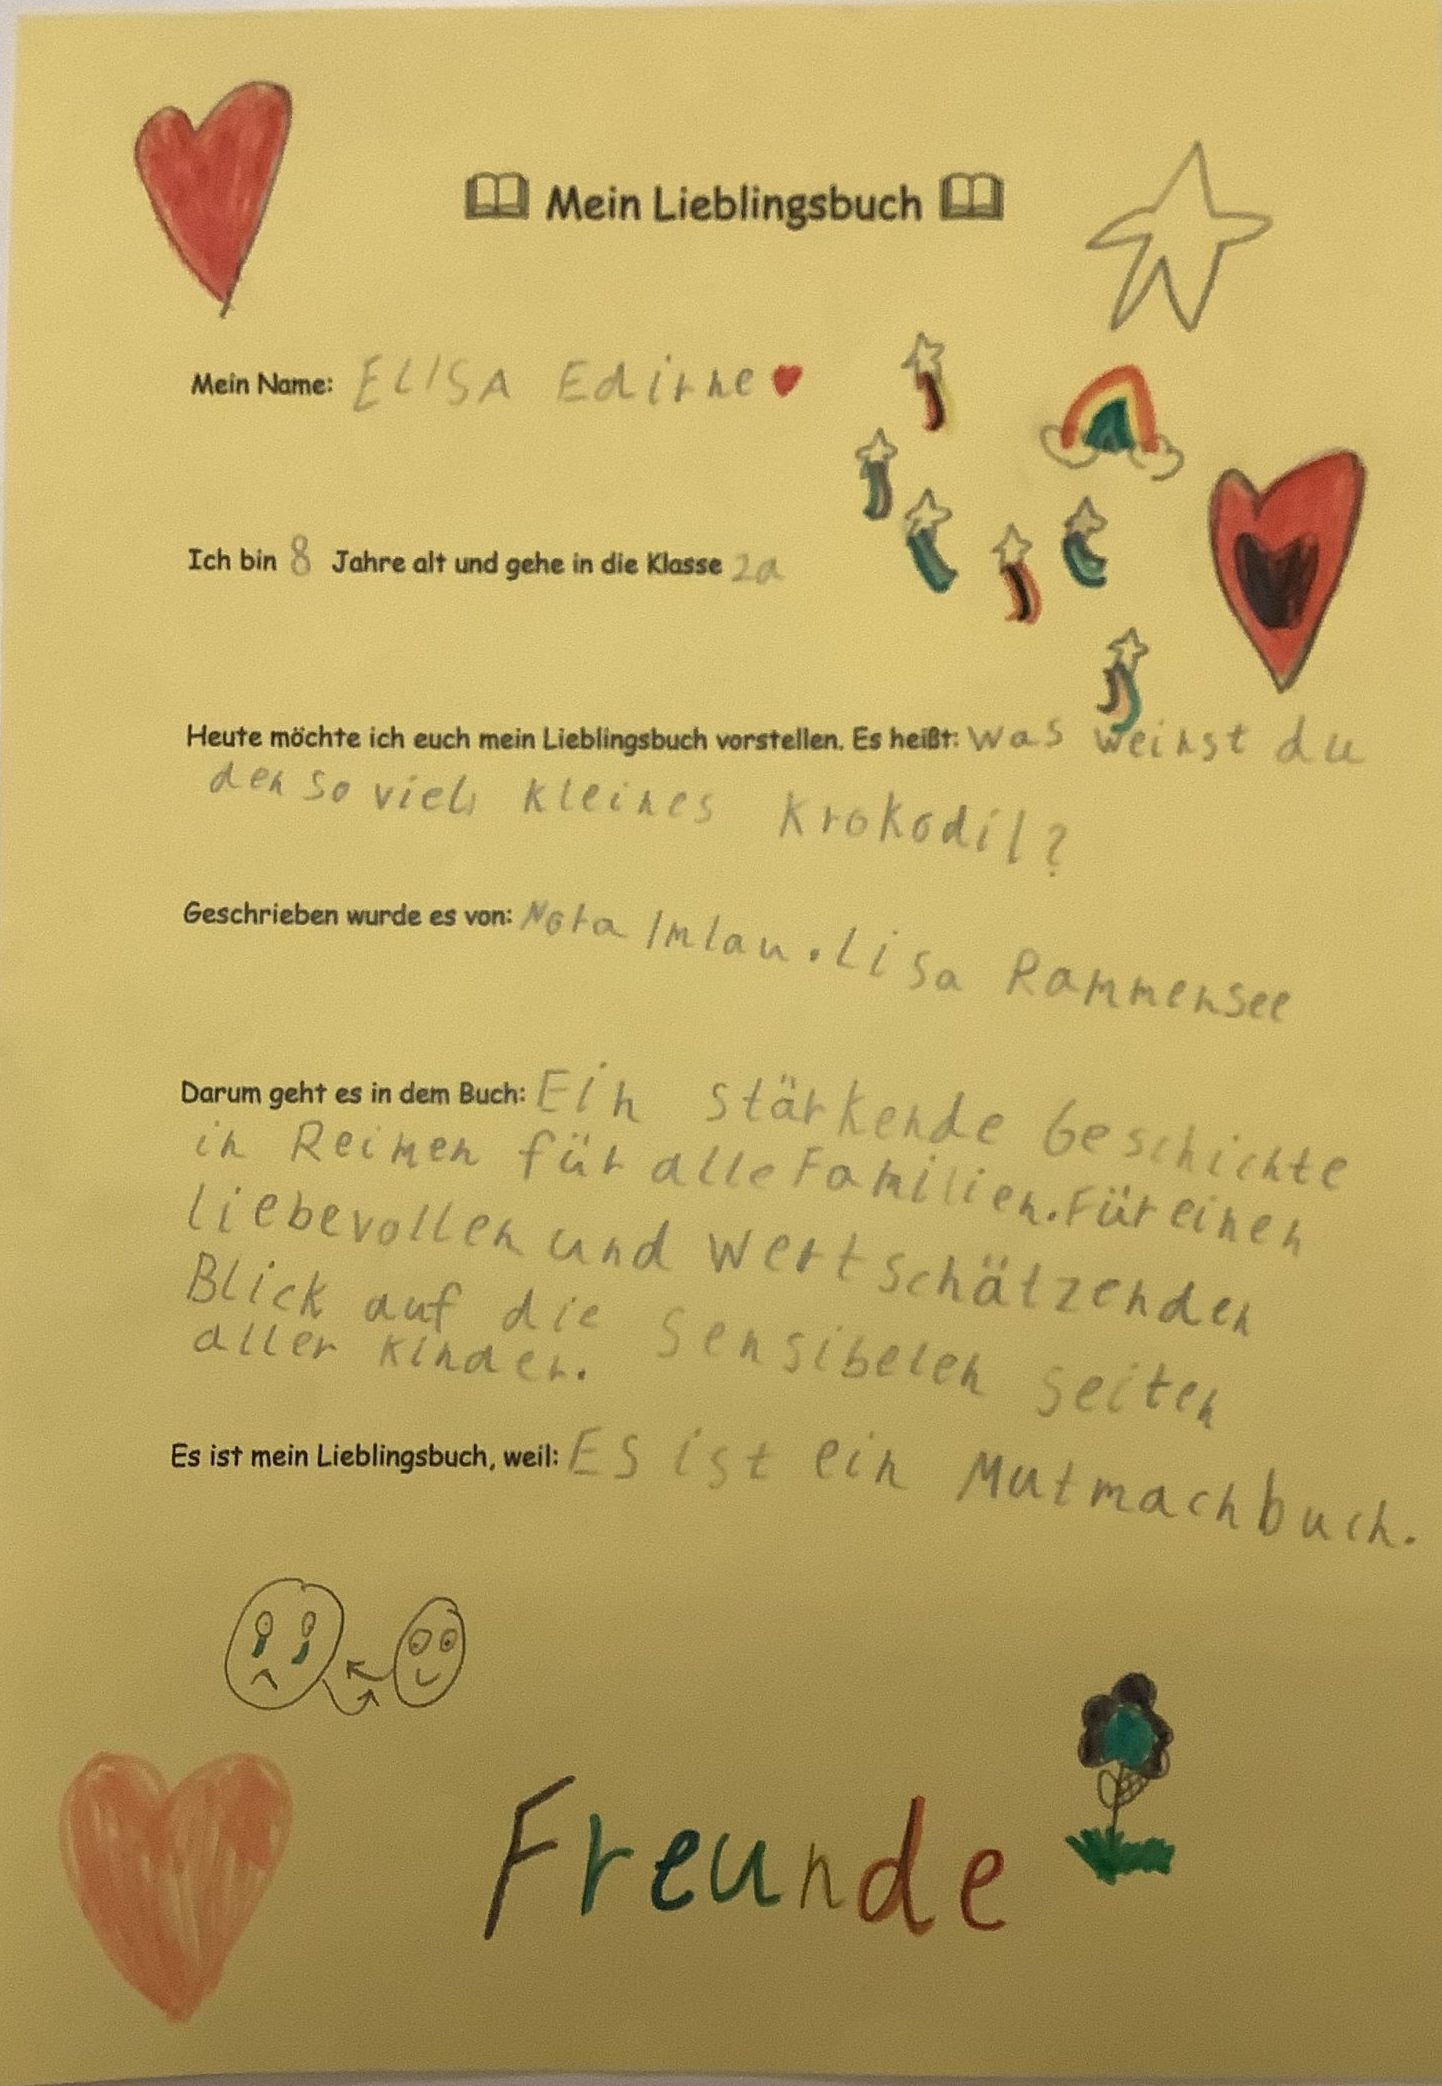 Mein Lieblingsbuch
Mein Name: ELISA Edirne
Ich bin 8 Jahre alt und gehe in die Klasse 2a
Heute möchte ich euch mein Lieblingsbuch vorstellen. Es heißt: Was weinst du
den so viel, kleines Krokodil?
Geschrieben wurde es von: Nora Imlau. Lisa Rammensee
Darum geht es in dem Buch: Ein stärkende Geschichte
in Reimen für alle Familien. Für einen
liebevollen und wertschätzenden
Blick auf die sensibelen seiten
aller Kinder.
Es ist mein Lieblingsbuch, weil: ES ist ein Mutmachbuch.
Freunde